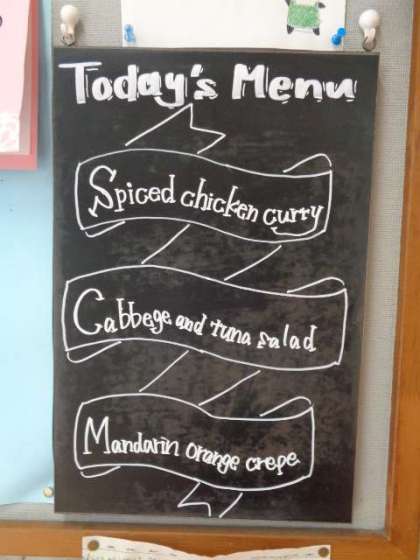 Today's Menu
Spiced chicken curry
Cabbege and tuna salad
Mandarin orange crepe